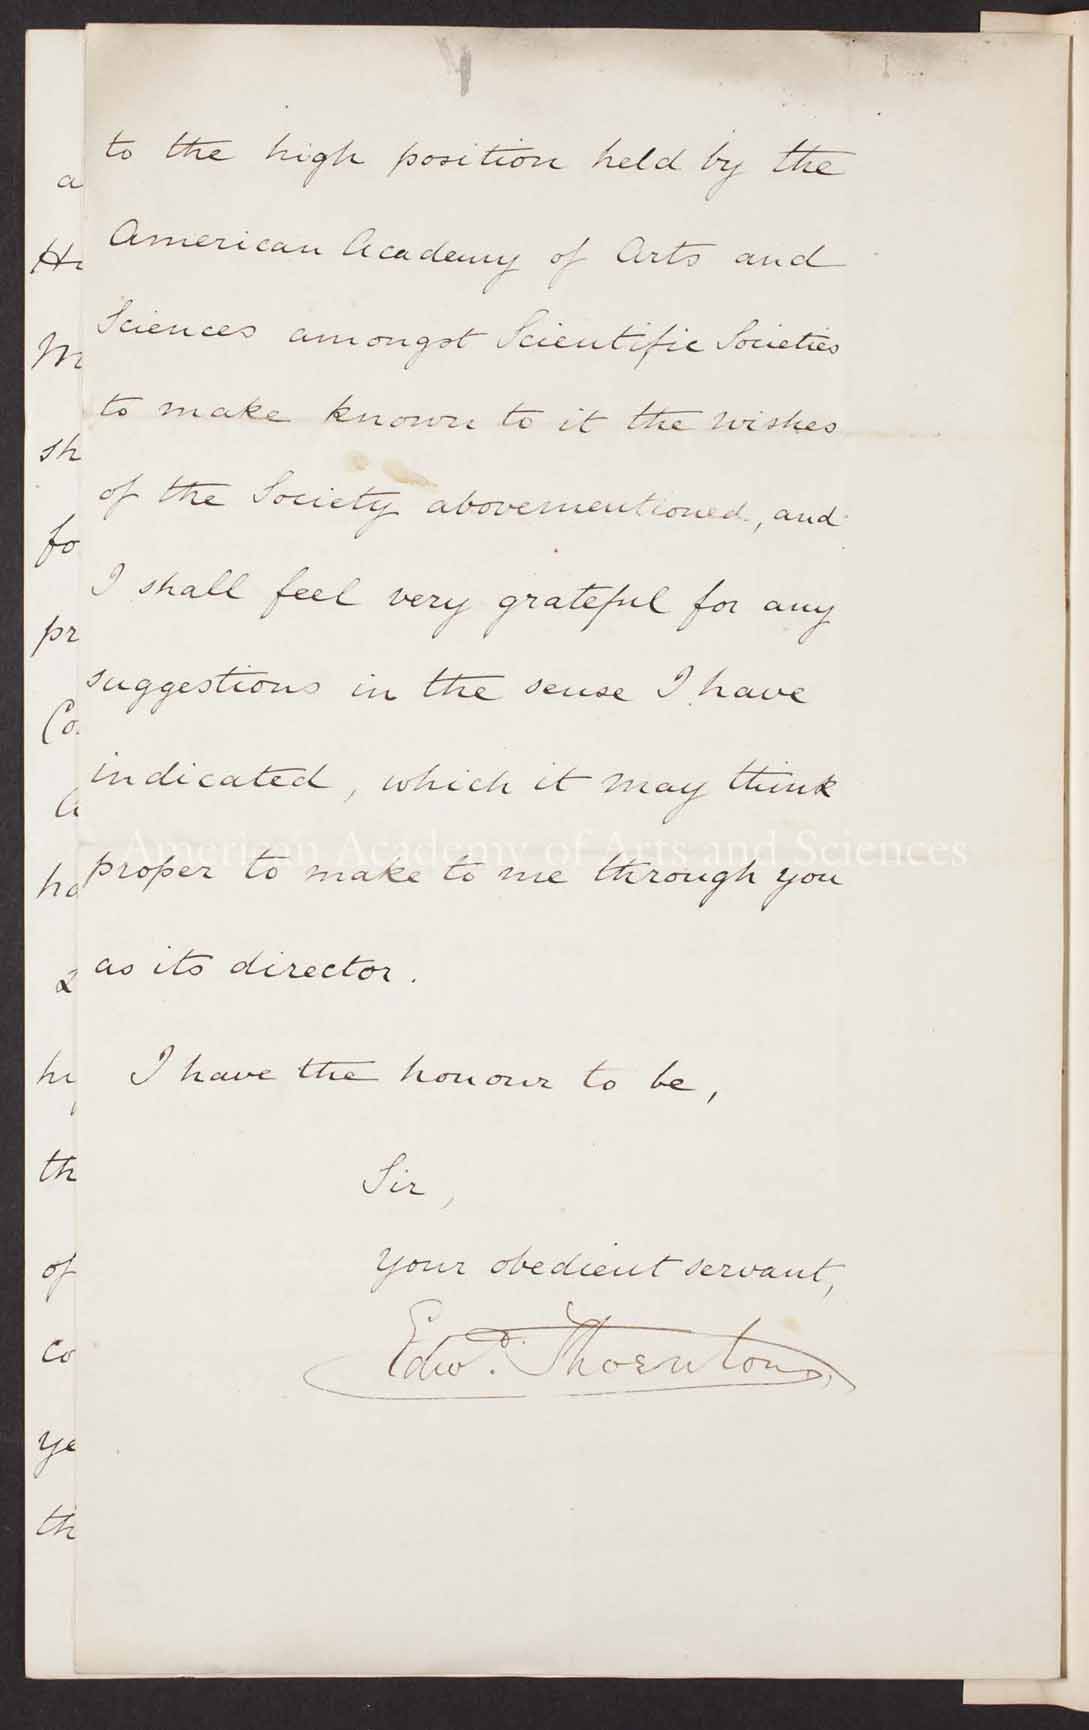 to the high position held by the
American Academy of Arts and
Sciences amongst Scientific Societies
to make known to it the wishes
of the Society abovementioned, and
I shall feel very grateful for any
suggestions in the sense I have
indicated, which it may think
American Academy of Arts and Sciences
proper to make to me through you
as its director.
I have the honour to be,
Sir,
your obedient servant,
Edwd. Thornton
a
Hi
M
sh
fo
pr
Co
a
ha
2
hi
th
of
co
ye
th